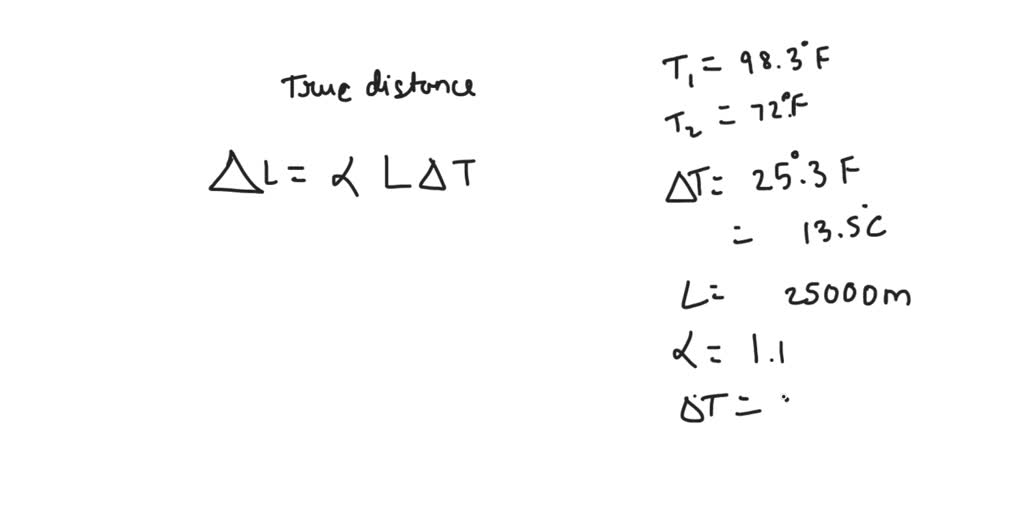 True distance
ΔL = α L Δ T
T₁ = 98.3°F
T₂ = 72°F
ΔT = 25°.3 F
= 13.5°C
L = 25000m
α = 1.1
ΔT =